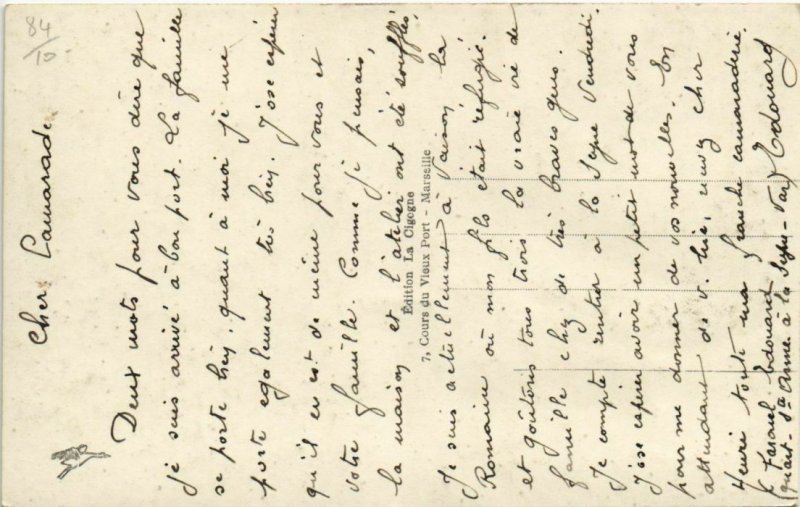 84/10
Cher Camarade
Deux mots pour vous dire que
je suis arrivé à bon port. La famille
se porte bien. quant à moi je me
porte egalement très bien. J'ose esperer
qu'il en est de même pour vous et
votre famille. Comme je pensais,
la maison et l'atelier ont été soufflés.
Je suis actuellement à Vaison la
Romaine où mon fils était réfugié.
et goûtons tous trois la vraie vie de
famille chez de très braves gens.
Je compte rentrer à la Seyne Vendredi.
J'ose esperer avoir un petit mot de vous
pour me donner de vos nouvelles. En
attendant de v. lire, recevez cher
Henri toute ma franche camaraderie.
Edouard
Edouard
quart. Ste Anne. à la Seyne-Var
Édition La Cigogne
7, Cours du Vieux Port - Marseille